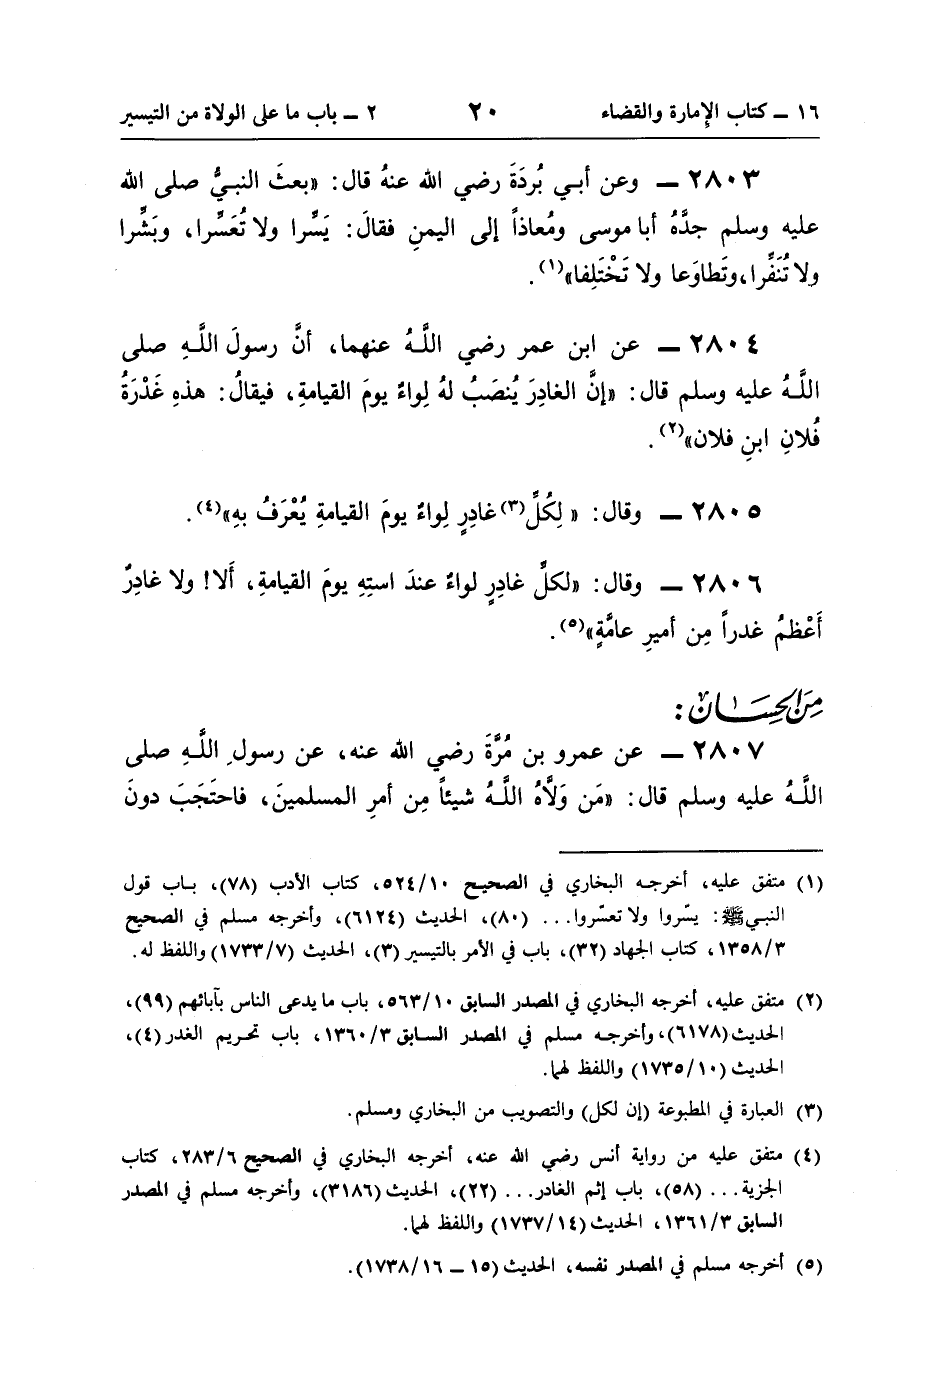 ١٦ ــ كتاب الإمارة والقضاء ٢٠ ٢ ــ باب ما على الولاة من التيسير
٢٨٠٣ ــ وعن أبـي بُردَةَ رضي الله عنهُ قال: «بعثَ النبـيُّ صلى الله
عليه وسلم جدَّهُ أبا موسى ومُعاذاً إلى اليمنِ فقالَ: يَسِّرا ولا تُعَسِّرا، وبَشِّرا
ولا تُنَفِّرا، وتَطاوَعا ولا تَخْتَلِفا»(١).
٢٨٠٤ ــ عن ابن عمر رضي اللَّـهُ عنهما، أنَّ رسولَ اللَّـهِ صلى
اللَّـهُ عليه وسلم قال: «إنَّ الغادِرَ يُنصَبُ لهُ لِواءٌ يومَ القيامةِ، فيقالُ: هذهِ غَدْرَةُ
فُلانِ ابنِ فلان»(٢).
٢٨٠٥ ــ وقال: « لِكُلِّ(٣) غادِرٍ لِواءٌ يومَ القيامةِ يُعْرَفُ بهِ»(٤).
٢٨٠٦ ــ وقال: «لكلِّ غادِرٍ لواءٌ عندَ استِهِ يومَ القيامةِ، أَلا! ولا غادِرٌ
أَعْظمُ غدراً مِن أميرِ عامَّةٍ»(٥).
مِنَ الحِسَان:
٢٨٠٧ ــ عن عمرو بن مُرَّةَ رضي الله عنه، عن رسولِ اللَّـهِ صلى
اللَّـهُ عليه وسلم قال: «مَن وَلَّاهُ اللَّـهُ شيئاً مِن أمرِ المسلمينَ، فاحتَجَبَ دونَ
(١) متفق عليه، أخرجه البخاري في الصحيح ٥٢٤/١٠، كتاب الأدب (٧٨)، بـاب قول
النبـيﷺ: يسّروا ولا تعسّروا... (٨٠)، الحديث (٦١٢٤)، وأخرجه مسلم في الصحيح
١٣٥٨/٣، كتاب الجهاد (٣٢)، باب في الأمر بالتيسير (٣)، الحديث (١٧٣٣/٧) واللفظ له.
(٢) متفق عليه، أخرجه البخاري في المصدر السابق ٥٦٣/١٠، باب ما يدعى الناس بآبائهم (٩٩)،
الحديث (٦١٧٨)، وأخرجـه مسلم في المصدر السـابق ١٣٦٠/٣، باب تحـريم الغدر (٤)،
الحديث (١٧٣٥/١٠) واللفظ لهما.
(٣) العبارة في المطبوعة (إن لكل) والتصويب من البخاري ومسلم.
(٤) متفق عليه من رواية أنس رضي الله عنه، أخرجه البخاري في الصحيح ٢٨٣/٦، كتاب
الجزية... (٥٨)، باب إثم الغادر... (٢٢)، الحديث (٣١٨٦)، وأخرجه مسلم في المصدر
السابق ١٣٦١/٣، الحديث (١٧٣٧/١٤) واللفظ لهما.
(٥) أخرجه مسلم في المصدر نفسه، الحديث (١٥ ــ ١٧٣٨/١٦).